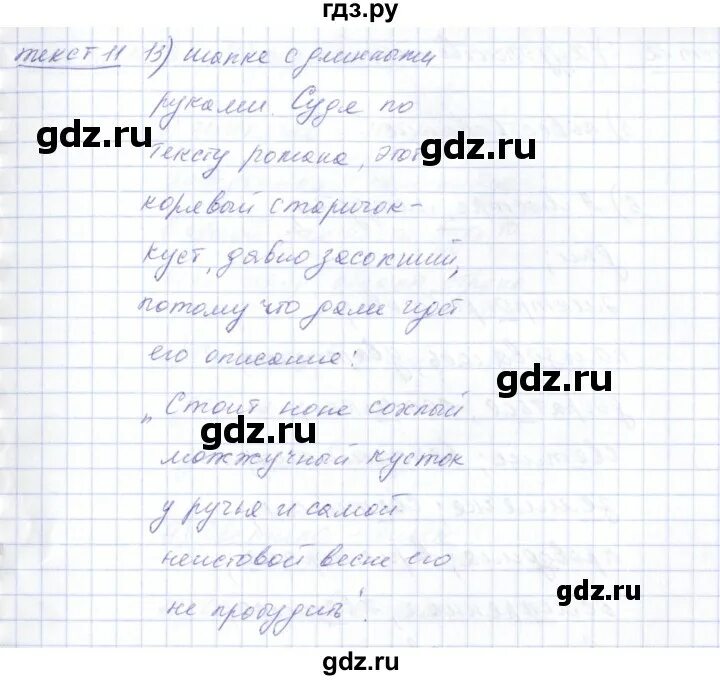 гдз.ру
текст 11 13) шапке с длинными
руками. Судя по
gdz.ru
gdz.ru
тексту романа, этот
корявый старичок-
куст, давно засохший,
потому что дали идет
его описание:
gdz.ru
„Стоит ноне сохлый
gdz.ru
можжучный кусток
у ручья и самой
неистовой весне его
gdz.ru
не пробудить!
gdz.ru
gdz.ru